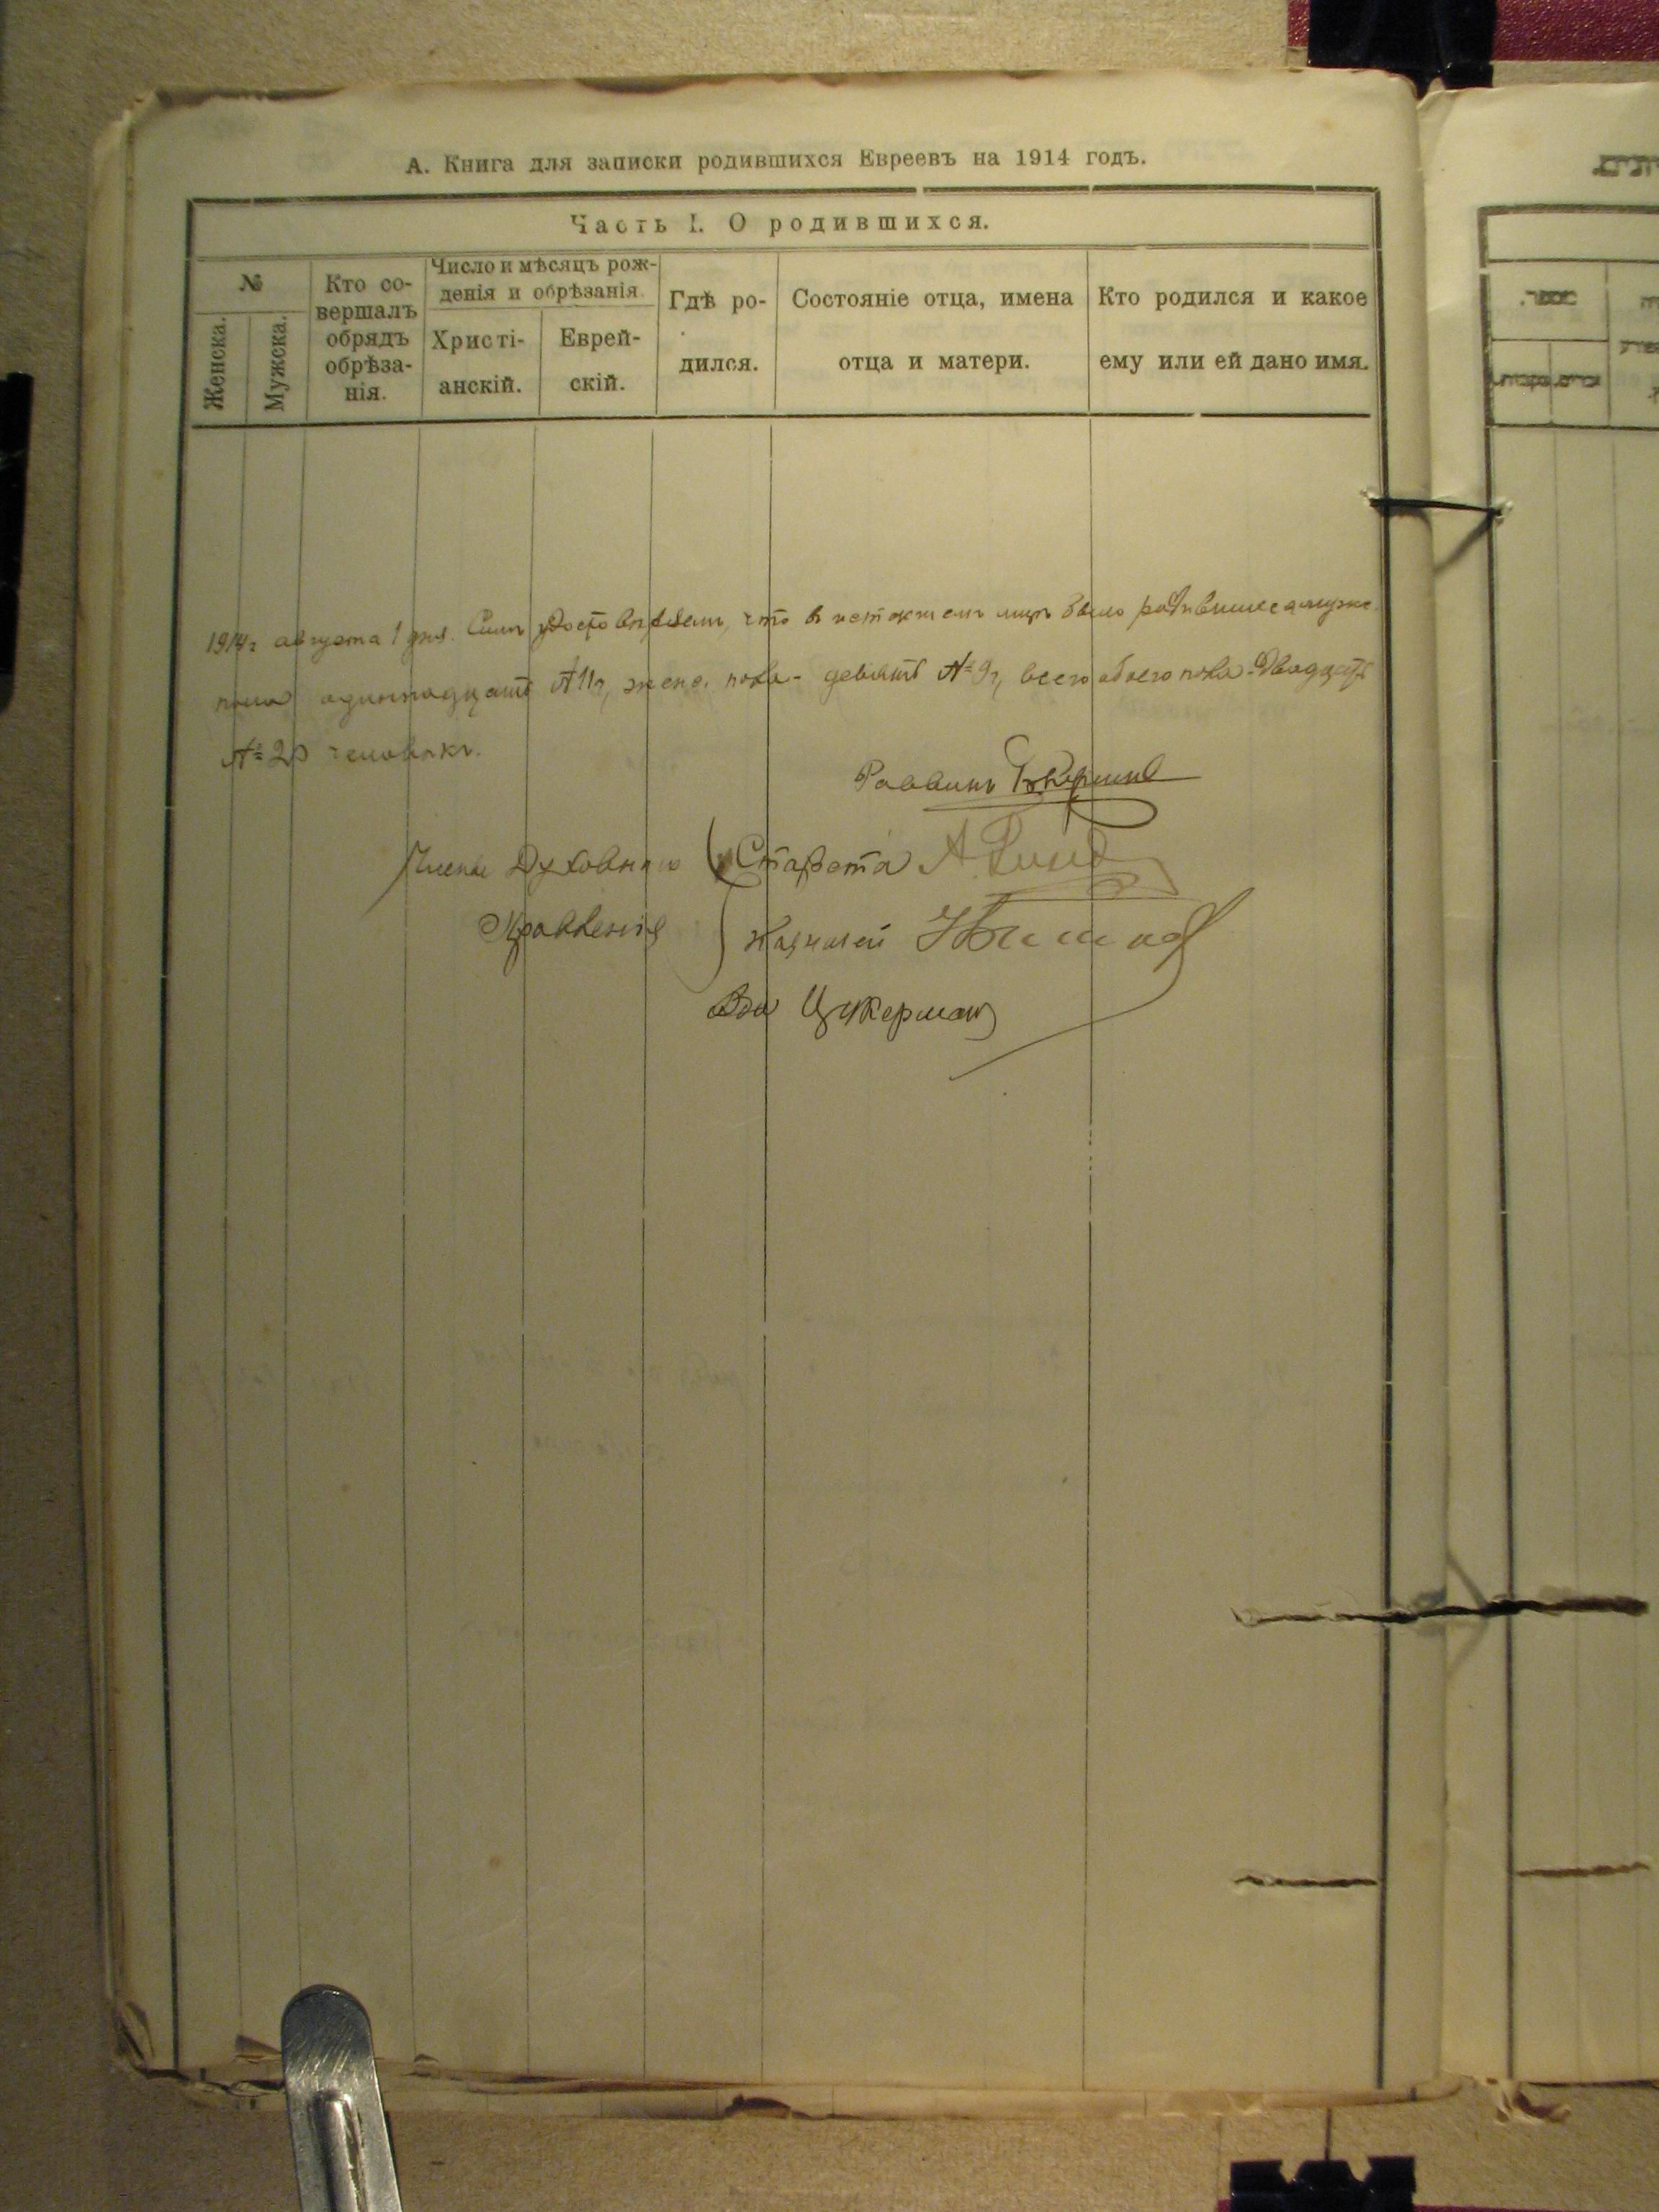 А. Книга для записки родившихся Евреевъ на 1914 годъ.
Часть I. О родившихся.
№
Женска.
Мужска.
Кто со-
вершалъ
обрядъ
обрѣза-
нія.
Число и мѣсяцъ рож-
денія и обрѣзанія.
Христі-
анскій.
Еврей-
скій.
Гдѣ ро-
дился.
Состояніе отца, имена
отца и матери.
Кто родился и какое
ему или ей дано имя.
1914 г августа 1 дня. Симъ что в было родившихся мужс.
пола одиннадцать № 11, женс. пола - девять № 9, всего обоего пола - двадцать
№ 20 человѣкъ.
Раввинъ
Члены Духовнаго
Правленія
Староста А.
Казначей
Цукерман